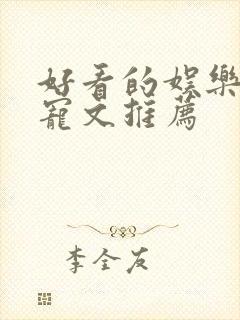 好看的娱樂
寵文推薦
李全友